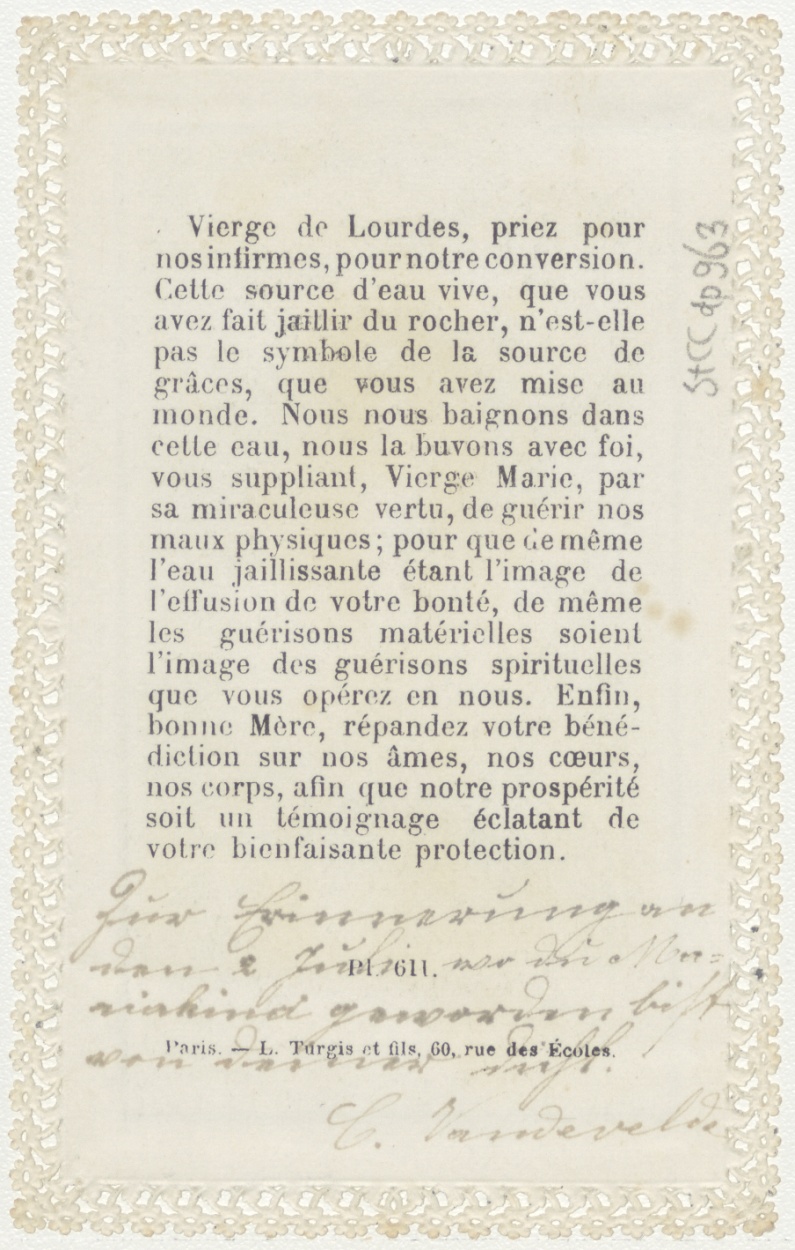 Vierge de Lourdes, priez pour
nos infirmes, pour notre conversion.
Cette source d'eau vive, que vous
avez fait jaillir du rocher, n'est-elle
pas le symbole de la source de
grâces, que vous avez mise au
monde. Nous nous baignons dans
cette eau, nous la buvons avec foi,
vous suppliant, Vierge Marie, par
sa miraculeuse vertu, de guérir nos
maux physiques; pour que de même
l'eau jaillissante étant l'image de
l'effusion de votre bonté, de même
les guérisons matérielles soient
l'image des guérisons spirituelles
que vous opérez en nous. Enfin,
bonne Mère, répandez votre béné-
diction sur nos âmes, nos cœurs,
nos corps, afin que notre prospérité
soit un témoignage éclatant de
votre bienfaisante protection.
Zur Erinnerung an
den 2 Juli wo du Ma=
riakind geworden bist
von deiner
C. Vandevelde
Pl. 611.
Paris. — L. Turgis et fils, 60, rue des Écoles.
StCC dp 963